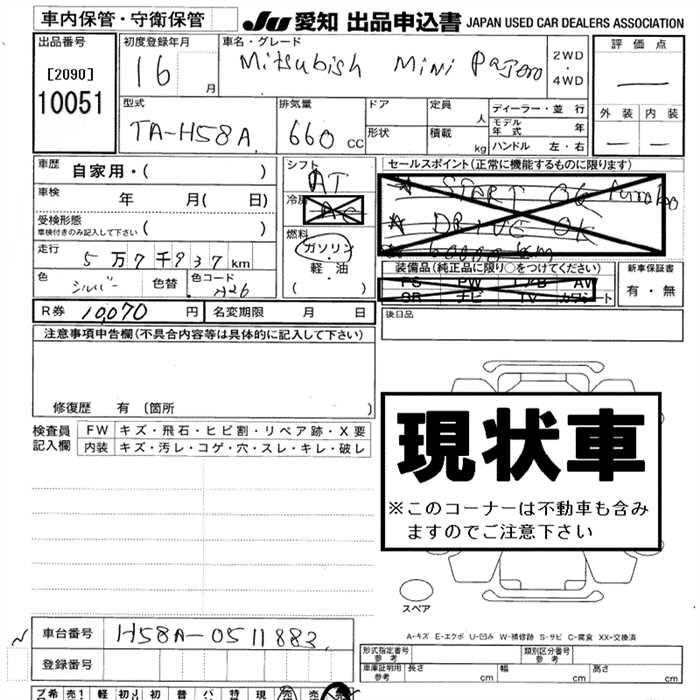 車内保管・守衛保管
JU 愛知 出品申込書 JAPAN USED CAR DEALERS ASSOCIATION
出品番号
[2090]
10051
初度登録年月
16 月
車名・グレード
Mitsubish Mini Pajero
2WD
・
4WD
評価点
—
外装 内装
— —
型式
TA-H58A
排気量
660 CC
ドア
形状
定員 人
積載 kg
ディーラー・並行
モデル年式 年
ハンドル 左・右
車歴 自家用・( )
車検 年 月( 日)
受検形態
車検付きのみ記入して下さい ( )
走行 5万7千937km
色 シルバー 色替 色コード A26
シフト
AT
冷房
AC
燃料
ガソリン
・
軽油
( )
セールスポイント(正常に機能するものに限ります)
★ START OK turabo
★ DRIVE OK
★
装備品(純正品に限り○をつけてください)
PS PW エアB AW
SR ナビ TV カワシート
新車保証書
有・無
R券 10,070 円 名変期限 月 日
後日品
注意事項申告欄(不具合内容等は具体的に記入して下さい)
修復歴 有 〔箇所 〕
検査員
記入欄
FW キズ・飛石・ヒビ割・リペア跡・X要
内装 キズ・汚レ・コゲ・穴・スレ・キレ・破レ
現状車
※このコーナーは不動車も含み
ますのでご注意下さい
スペア
車台番号 H58A-0511883
登録番号
A-キズ E-エクボ U-凹み W-補修跡 S-サビ C-腐食 XX-交換済
形式指定番号
参考
類別区分番号
参考
車庫証明用
参考
長さ cm 幅 cm 高さ cm